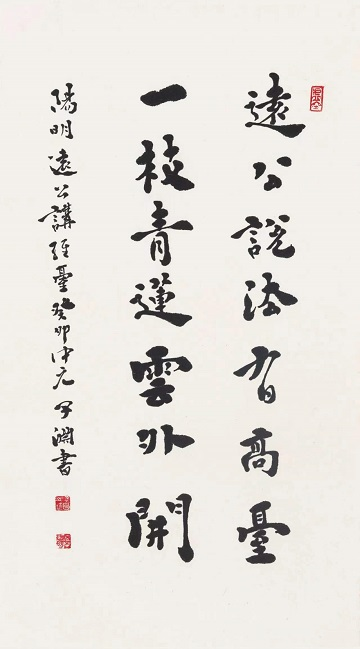 遠公說法有高臺
一枝青蓮雲外開
陽明遠公講經臺癸卯中元子淵書